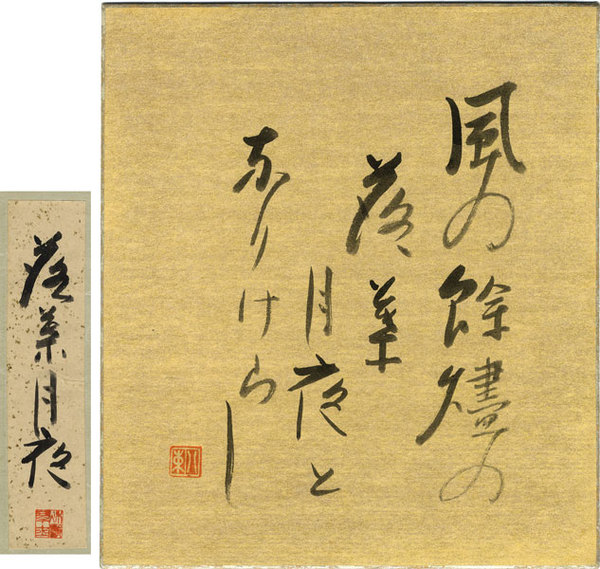 風の餘燼の
落葉
月夜と
なりけらし
落葉月夜